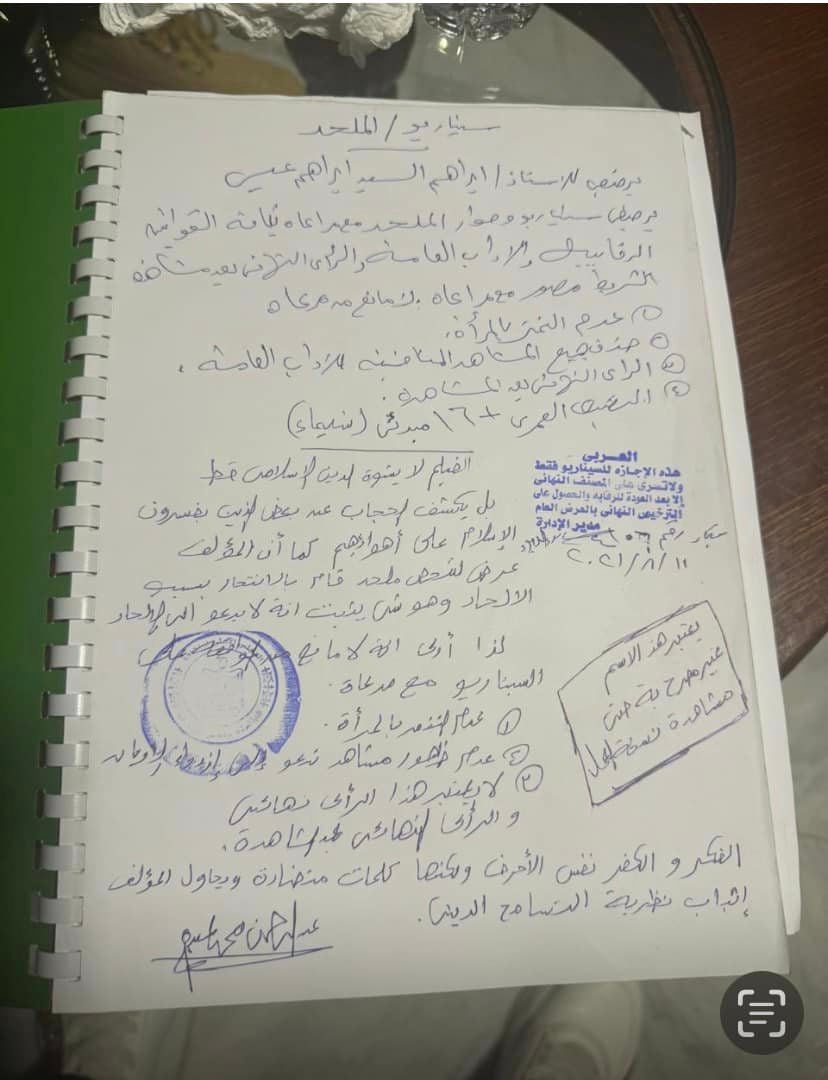 سيناريو / الملحد
يرخص للأستاذ / ابراهيم السيد ابراهيم عيسى
يرخص سيناريو وحوار الملحد مع مراعاة كافة القوانين
الرقابية والآداب العامة والرأى النهائى بعد مشاهدة
الشريط مصور مع مراعاة
① عدم التنمر بالمرأة.
② حذف جميع المشاهد المنافية للآداب العامة.
③ الرأى النهائى بعد المشاهدة.
④ التصنيف العمرى +١٦ مبدئى (سينما)
الفيلم لا يشوة الدين الإسلامى قط
بل يكشف الحجاب عن بعض الذين يفسرون
الإسلام على أهوائهم كما أن المؤلف
عرض لشخص ملحد قام بالانتحار بسبب
الالحاد وهو شئ يثبت انة لا يدعو الى الالحاد
لذا أرى انة لا مانع من
السيناريو مع مرعاة.
① عدم التنمر بالمرأة.
② عدم ظهور مشاهد تدعو إلى إزدراء الأديان
③ لا يعتبر هذا الرأى نهائى
و الرأى النهائى بعد المشاهدة.
الفكر و الكفر نفس الأحرف ولكنها كلمات متضادة ويحاول المؤلف
إثبات نظرية التسامح الدينى.
العربى
هذه الإجازه للسيناريو فقط
ولاتسرى على المصنف النهائى
إلا بعد العودة للرقابه والحصول على
الترخيص النهائى بالعرض العام
مدير الإدارة
٢٠٢١/٨/١١
يعتبر هذا الاسم
غير مصرح بة حتى
مشاهدة نسخة العمل